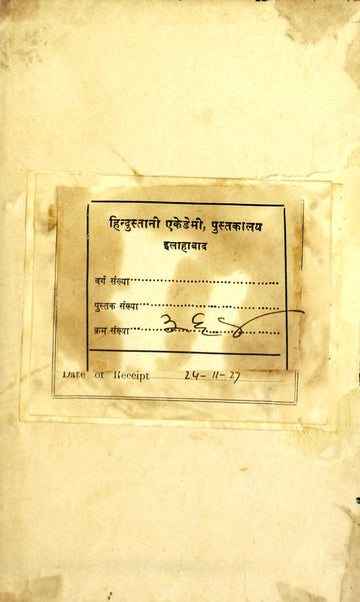 हिन्दुस्तानी एकेडेमी, पुस्तकालय
इलाहाबाद
वर्ग संख्या
पुस्तक संख्या
क्रम संख्या
Date of Receipt 24-11-27